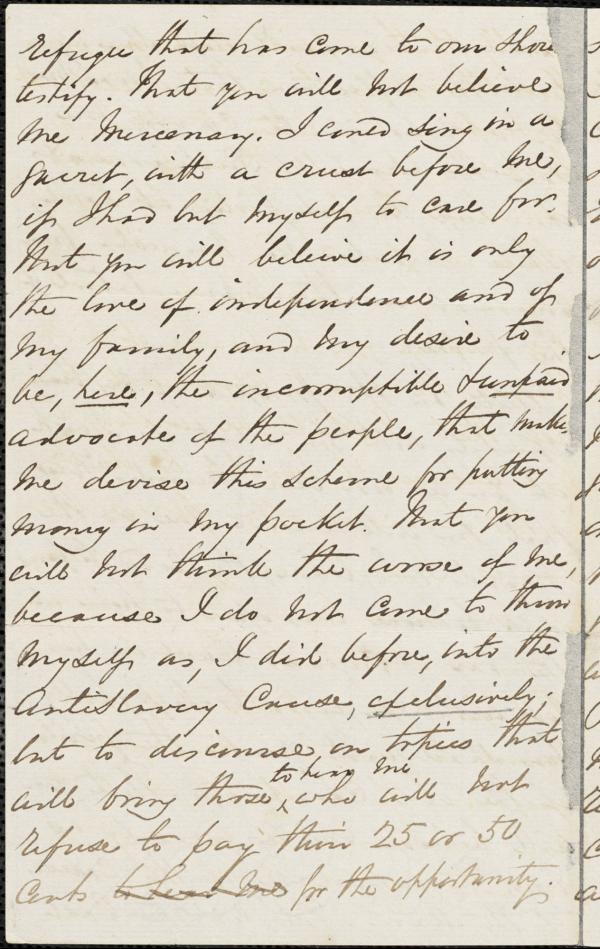 refugee that has come to our shore
testify. That you will not believe
me mercenary. I could sing in a
garret, with a crust before me,
if I had but myself to care for.
That you will believe it is only
the love of independence and of
my family, and my desire to
be, here, the incorruptible & unpaid
advocate of the people, that makes
me devise this scheme for putting
money in my pocket. That you
will not think the worse of me,
because I do not come to throw
myself as, I did before, into the
AntiSlavery Cause, exclusively;
but to discourse on topics that
to hear me
will bring those, who will not
refuse to pay their 25 or 50
cents to hear me for the opportunity.